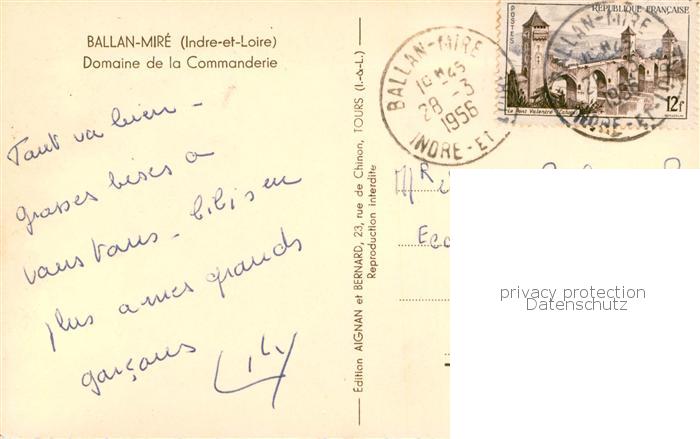 BALLAN-MIRÉ (Indre-et-Loire)
Domaine de la Commanderie
Tout va bien -
grosses bises a
vous tous - bibis en
plus a mes grands
garçons
Lily
Edition AIGNAN et BERNARD, 23, rue de Chinon, TOURS (I.-&-L.)
Reproduction interdite
BALLAN-MIRE
10H45
28-3
1956
INDRE-ET-LOIRE
POSTES
RÉPUBLIQUE FRANÇAISE
Le Pont Valentré (Cahors)
12F
BALLAN-MIRE
10H45
28-3
1956
INDRE-ET-LOIRE
MR
privacy protection
Datenschutz